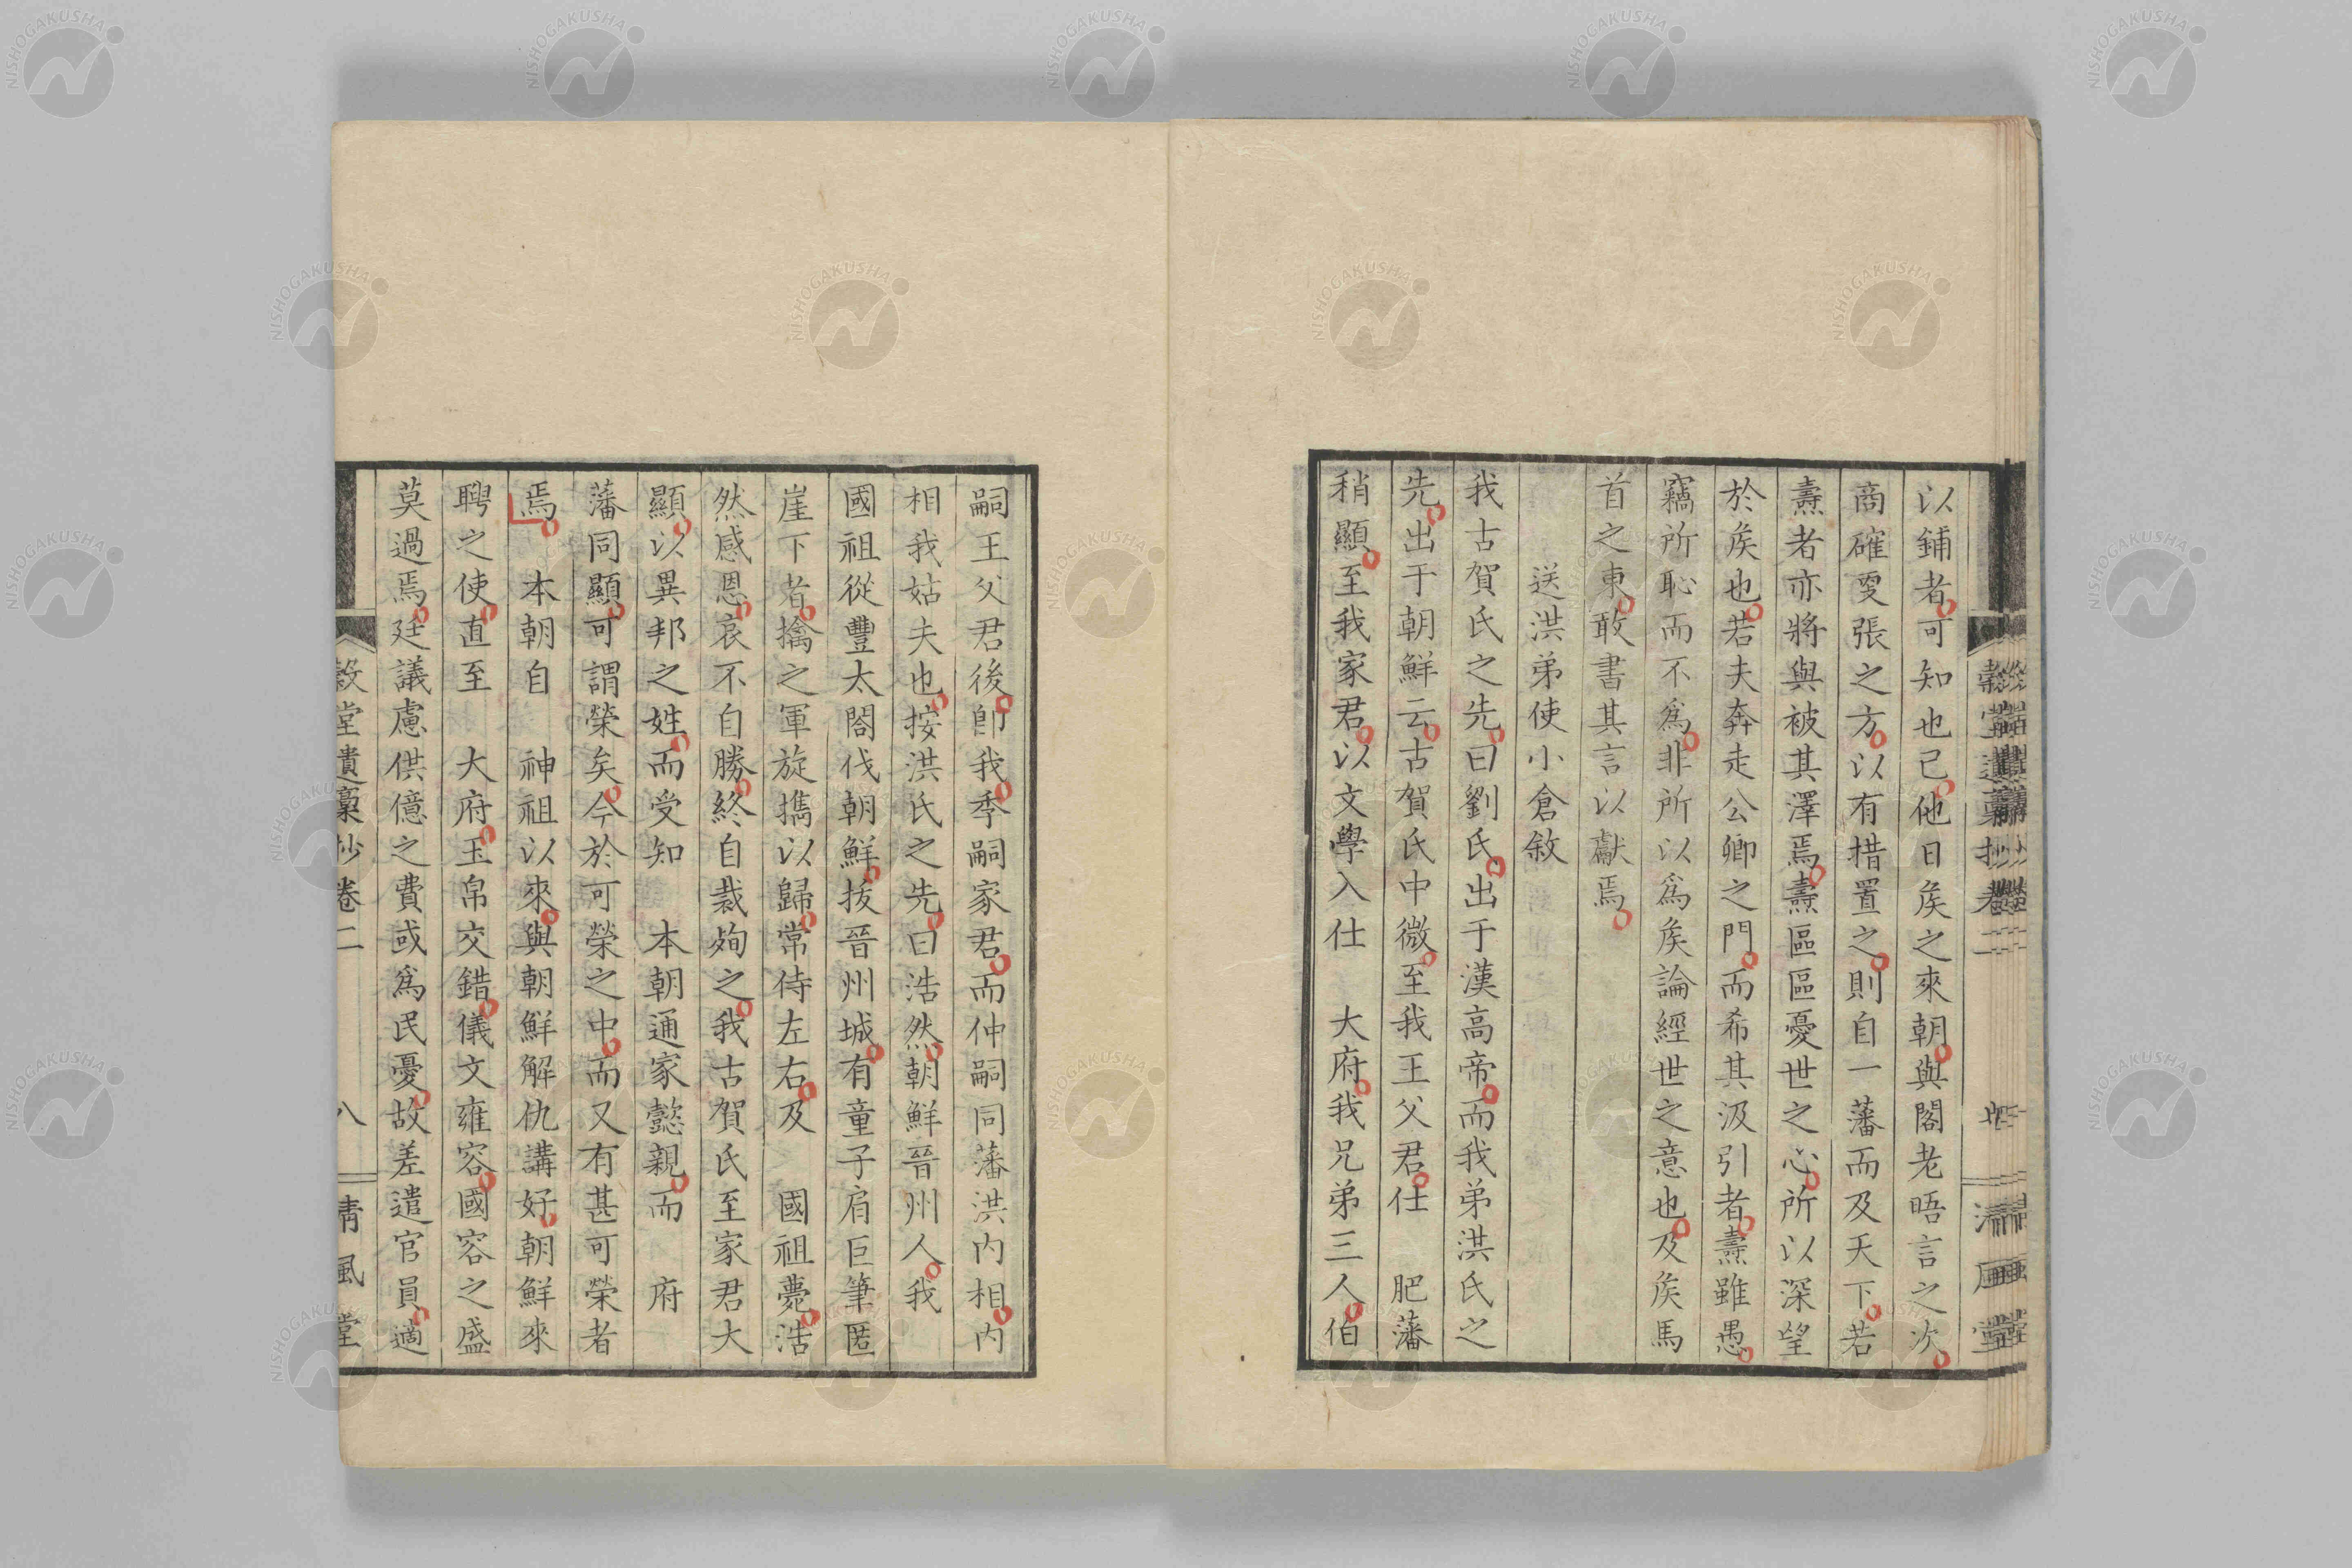 以鋪者可知也已他日矦之來朝與閣老晤言之次
商確更張之方以有措置之則自一藩而及天下若
燾者亦將與被其澤焉燾區區憂世之心所以深望
於矦也若夫奔走公卿之門而希其汲引者燾雖愚
竊所恥而不爲非所以爲矦論經世之意也及矦馬
首之東敢書其言以獻焉
送洪弟使小倉敘
我古賀氏之先曰劉氏出于漢高帝而我弟洪氏之
先出于朝鮮云古賀氏中微至我王父君仕 肥藩
稍顯至我家君以文學入仕 大府我兄弟三人伯
嗣王父君後卽我季嗣家君而仲嗣同藩洪内相内
相我姑夫也按洪氏之先曰浩然朝鮮晉州人我
國祖從豐太閤伐朝鮮拔晉州城有童子肩巨筆匿
崖下者擒之軍旋攜以歸常侍左右及 國祖薨浩
然感恩哀不自勝終自裁殉之我古賀氏至家君大
顯以異邦之姓而受知 本朝通家懿親而 府
藩同顯可謂榮矣今於可榮之中而又有甚可榮者
焉 本朝自 神祖以來與朝鮮解仇講好朝鮮來
聘之使直至 大府玉帛交錯儀文雍容國容之盛
莫過焉廷議慮供億之費或爲民憂故差遣官員適
穀堂遺稾抄卷二 八 清風堂